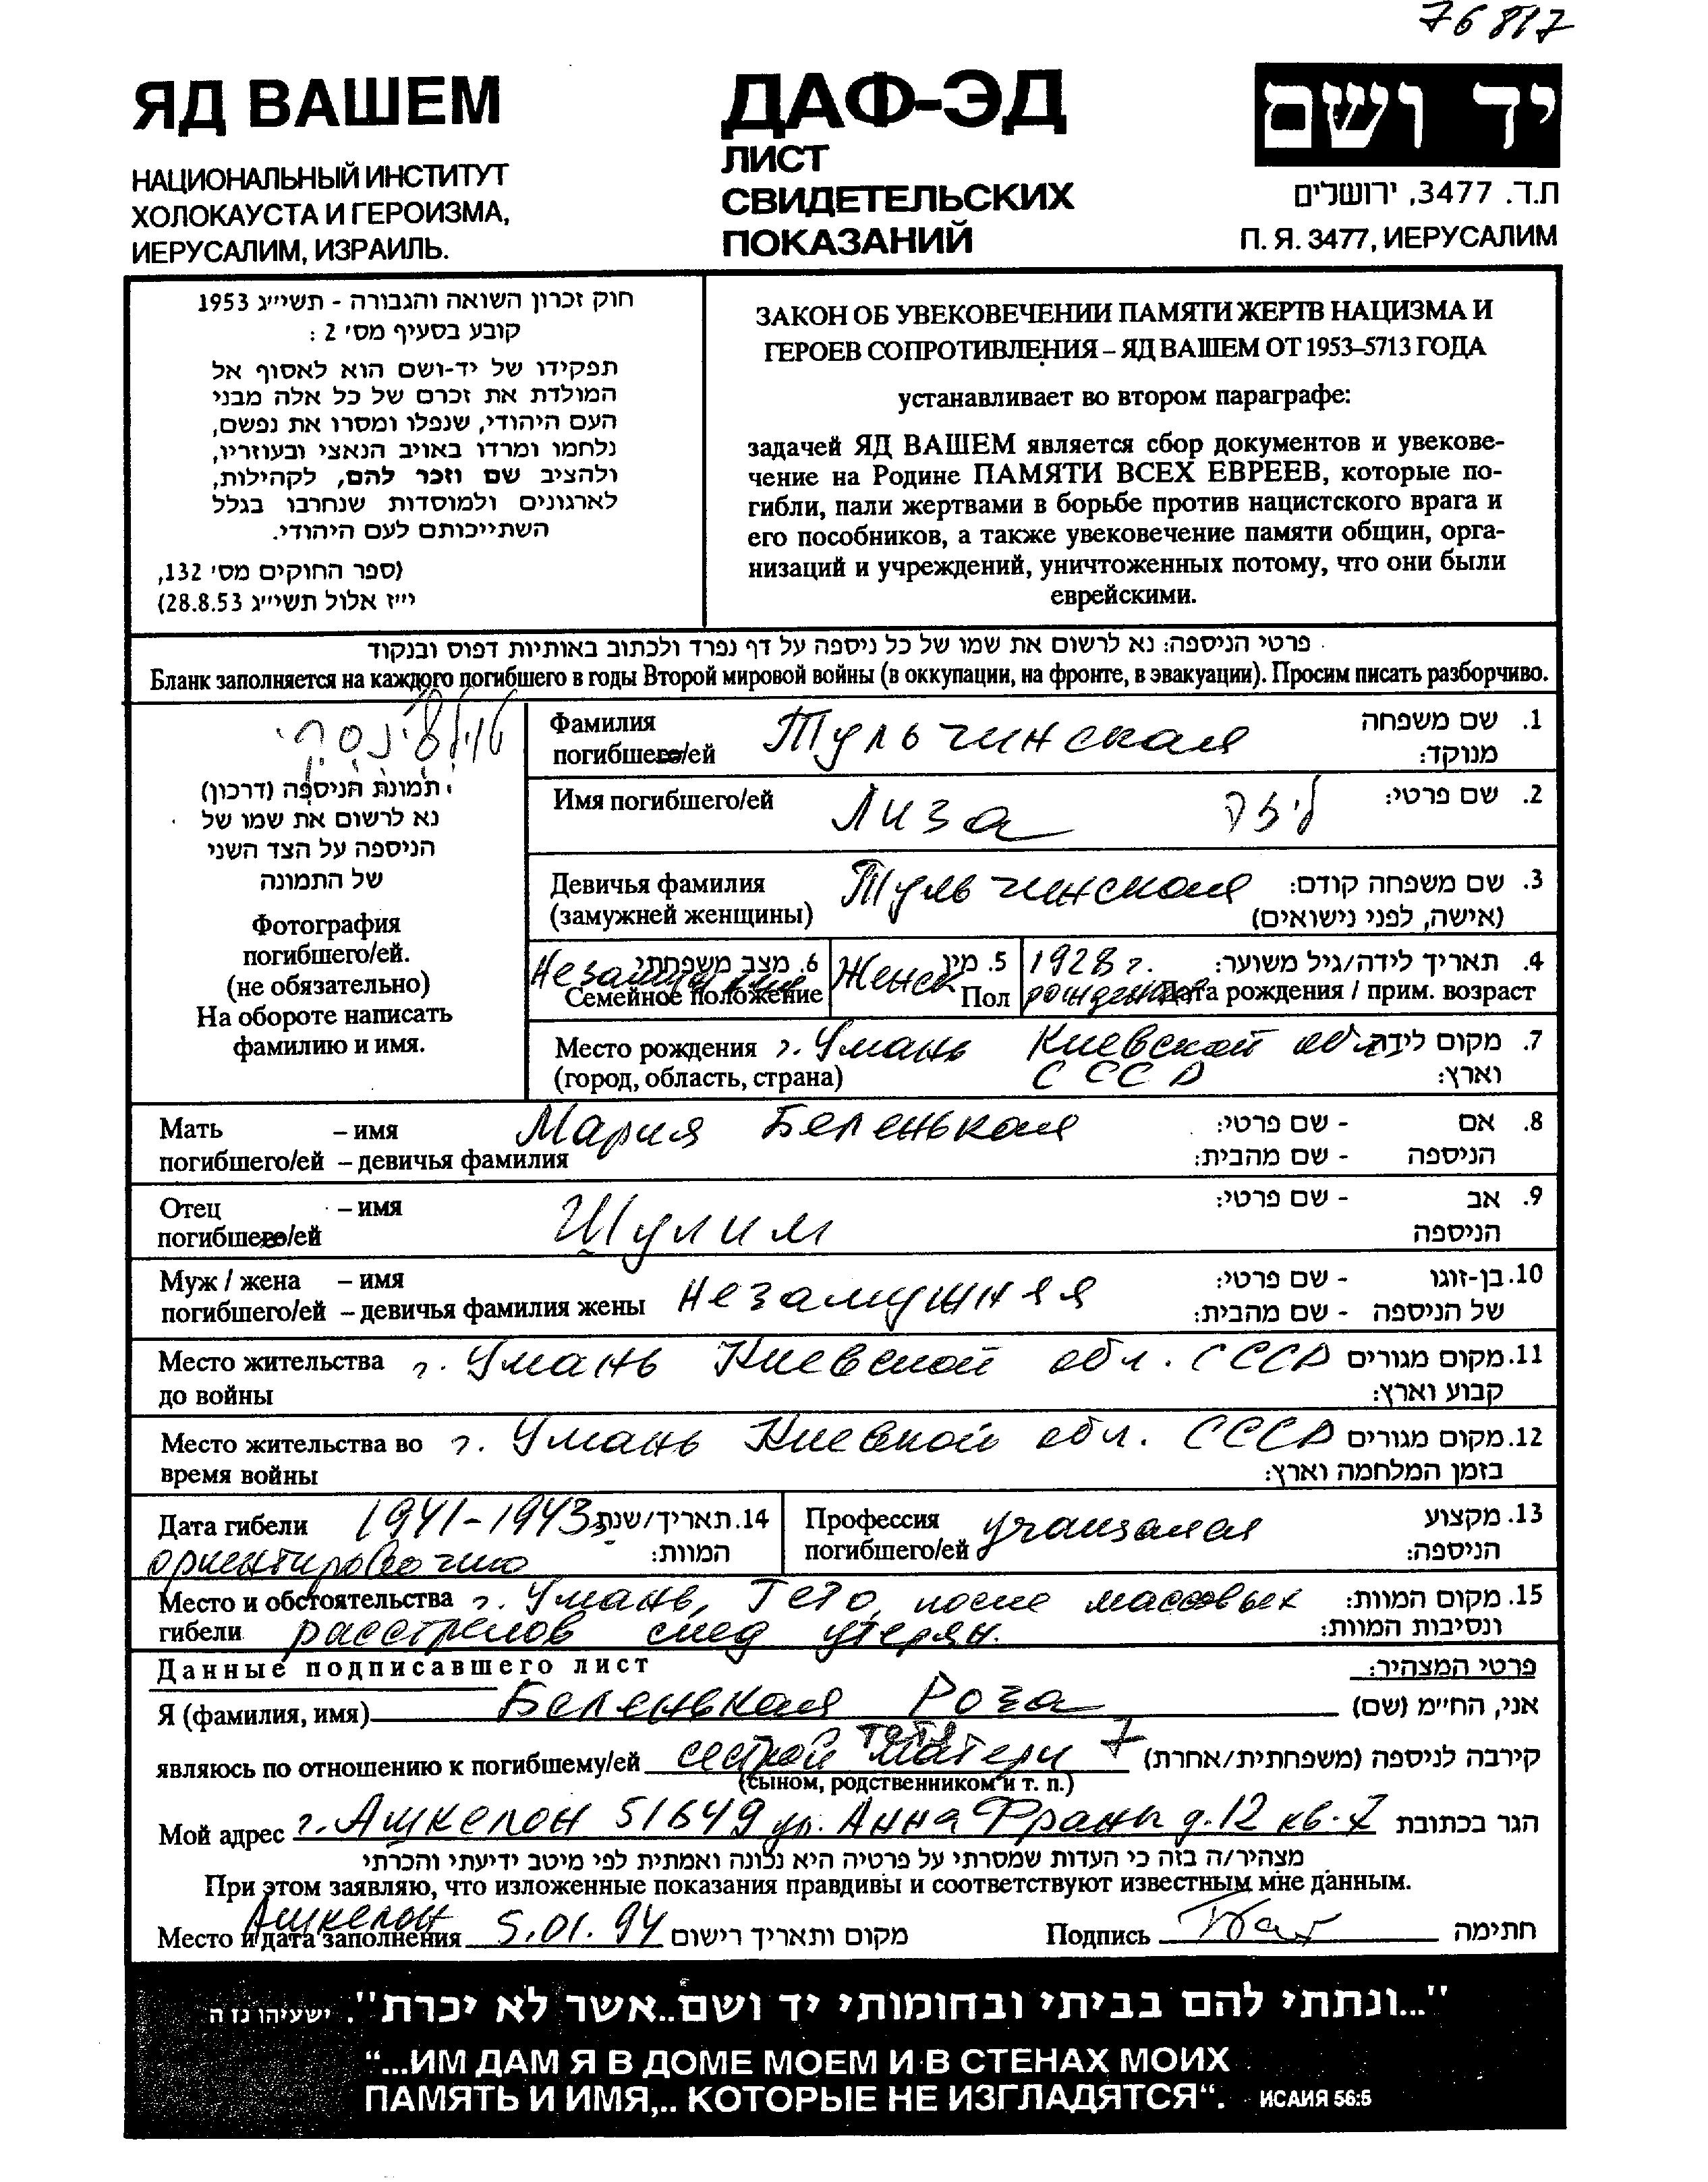 76817
ЯД ВАШЕМ
НАЦИОНАЛЬНЫЙ ИНСТИТУТ
ХОЛОКАУСТА И ГЕРОИЗМА,
ИЕРУСАЛИМ, ИЗРАИЛЬ.
ДАФ-ЭД
ЛИСТ
СВИДЕТЕЛЬСКИХ
ПОКАЗАНИЙ
יד ושם
ת.ד. 3477, ירושלים
П. Я. 3477, ИЕРУСАЛИМ
חוק זכרון השואה והגבורה - תשי״ג 1953
קובע בסעיף מס׳ 2 :
תפקידו של יד-ושם הוא לאסוף אל
המולדת את זכרם של כל אלה מבני
העם היהודי, שנפלו ומסרו את נפשם,
נלחמו ומרדו באויב הנאצי ובעוזריו,
ולהציב שם וזכר להם, לקהילות,
לארגונים ולמוסדות שנחרבו בגלל
השתייכותם לעם היהודי.
(ספר החוקים מס׳ 132,
י״ז אלול תשי״ג 28.8.53)
ЗАКОН ОБ УВЕКОВЕЧЕНИИ ПАМЯТИ ЖЕРТВ НАЦИЗМА И
ГЕРОЕВ СОПРОТИВЛЕНИЯ – ЯД ВАШЕМ ОТ 1953–5713 ГОДА
устанавливает во втором параграфе:
задачей ЯД ВАШЕМ является сбор документов и увекове-
чение на Родине ПАМЯТИ ВСЕХ ЕВРЕЕВ, которые по-
гибли, пали жертвами в борьбе против нацистского врага и
его пособников, а также увековечение памяти общин, орга-
низаций и учреждений, уничтоженных потому, что они были
еврейскими.
פרטי הניספה: נא לרשום את שמו של כל ניספה על דף נפרד ולכתוב באותיות דפוס ובנקוד
Бланк заполняется на каждого погибшего в годы Второй мировой войны (в оккупации, на фронте, в эвакуации). Просим писать разборчиво.
טולצ׳ינסקי
תמונת הניספה (דרכון)
נא לרשום את שמו של
הניספה על הצד השני
של התמונה
Фотография
погибшего/ей.
(не обязательно)
На обороте написать
фамилию и имя.
Фамилия Тульчинская 1. שם משפחה
погибшего/ей מנוקד:
Имя погибшего/ей Лиза ליזה 2. שם פרטי:
Девичья фамилия Тульчинская 3. שם משפחה קודם:
(замужней женщины) (אישה, לפני נישואים)
Незамужняя 6. מצב משפחתי Женск 5. מין 1928 г. 4. תאריך לידה/גיל משוער:
Семейное положение Пол рождения Дата рождения / прим. возраст
Место рождения г. Умань Киевской обл. 7. מקום לידה
(город, область, страна) СССР וארץ:
Мать – имя Мария Беленькая 8. אם - שם פרטי:
погибшего/ей – девичья фамилия הניספה - שם מהבית:
Отец – имя Шулим 9. אב - שם פרטי:
погибшего/ей הניספה
Муж / жена – имя незамужняя 10. בן-זוגו - שם פרטי:
погибшего/ей – девичья фамилия жены של הניספה - שם מהבית:
Место жительства г. Умань Киевской обл. СССР 11. מקום מגורים
до войны קבוע וארץ:
Место жительства во г. Умань Киевской обл. СССР 12. מקום מגורים
время войны בזמן המלחמה וארץ:
Дата гибели 1941-1943 14. תאריך/שנת Профессия учащаяся 13. מקצוע
ориентировочно המוות: погибшего/ей הניספה:
Место и обстоятельства г. Умань, Гето, после массовых 15. מקום המוות:
гибели расстрелов след утерян. ונסיבות המוות:
Данные подписавшего лист פרטי המצהיר:
Я (фамилия, имя) Беленькая Роза אני, הח״מ (שם)
тетя
являюсь по отношению к погибшему/ей сестрой матери קירבה לניספה (משפחתית/אחרת)
(сыном, родственником и т. п.)
Мой адрес г. Ашкелон 51649 ул. Анна Франк д. 12 кв. 7 הגר בכתובת
מצהיר/ה בזה כי העדות שמסרתי על פרטיה היא נכונה ואמתית לפי מיטב ידיעתי והכרתי
При этом заявляю, что изложенные показания правдивы и соответствуют известным мне данным.
Место и дата заполнения Ашкелон 5.01.94 מקום ותאריך רישום Подпись חתימה
"...ונתתי להם בביתי ובחומותי יד ושם..אשר לא יכרת". ישעיהו נז ה
“...ИМ ДАМ Я В ДОМЕ МОЕМ И В СТЕНАХ МОИХ
ПАМЯТЬ И ИМЯ,.. КОТОРЫЕ НЕ ИЗГЛАДЯТСЯ“. ИСАИЯ 56:5